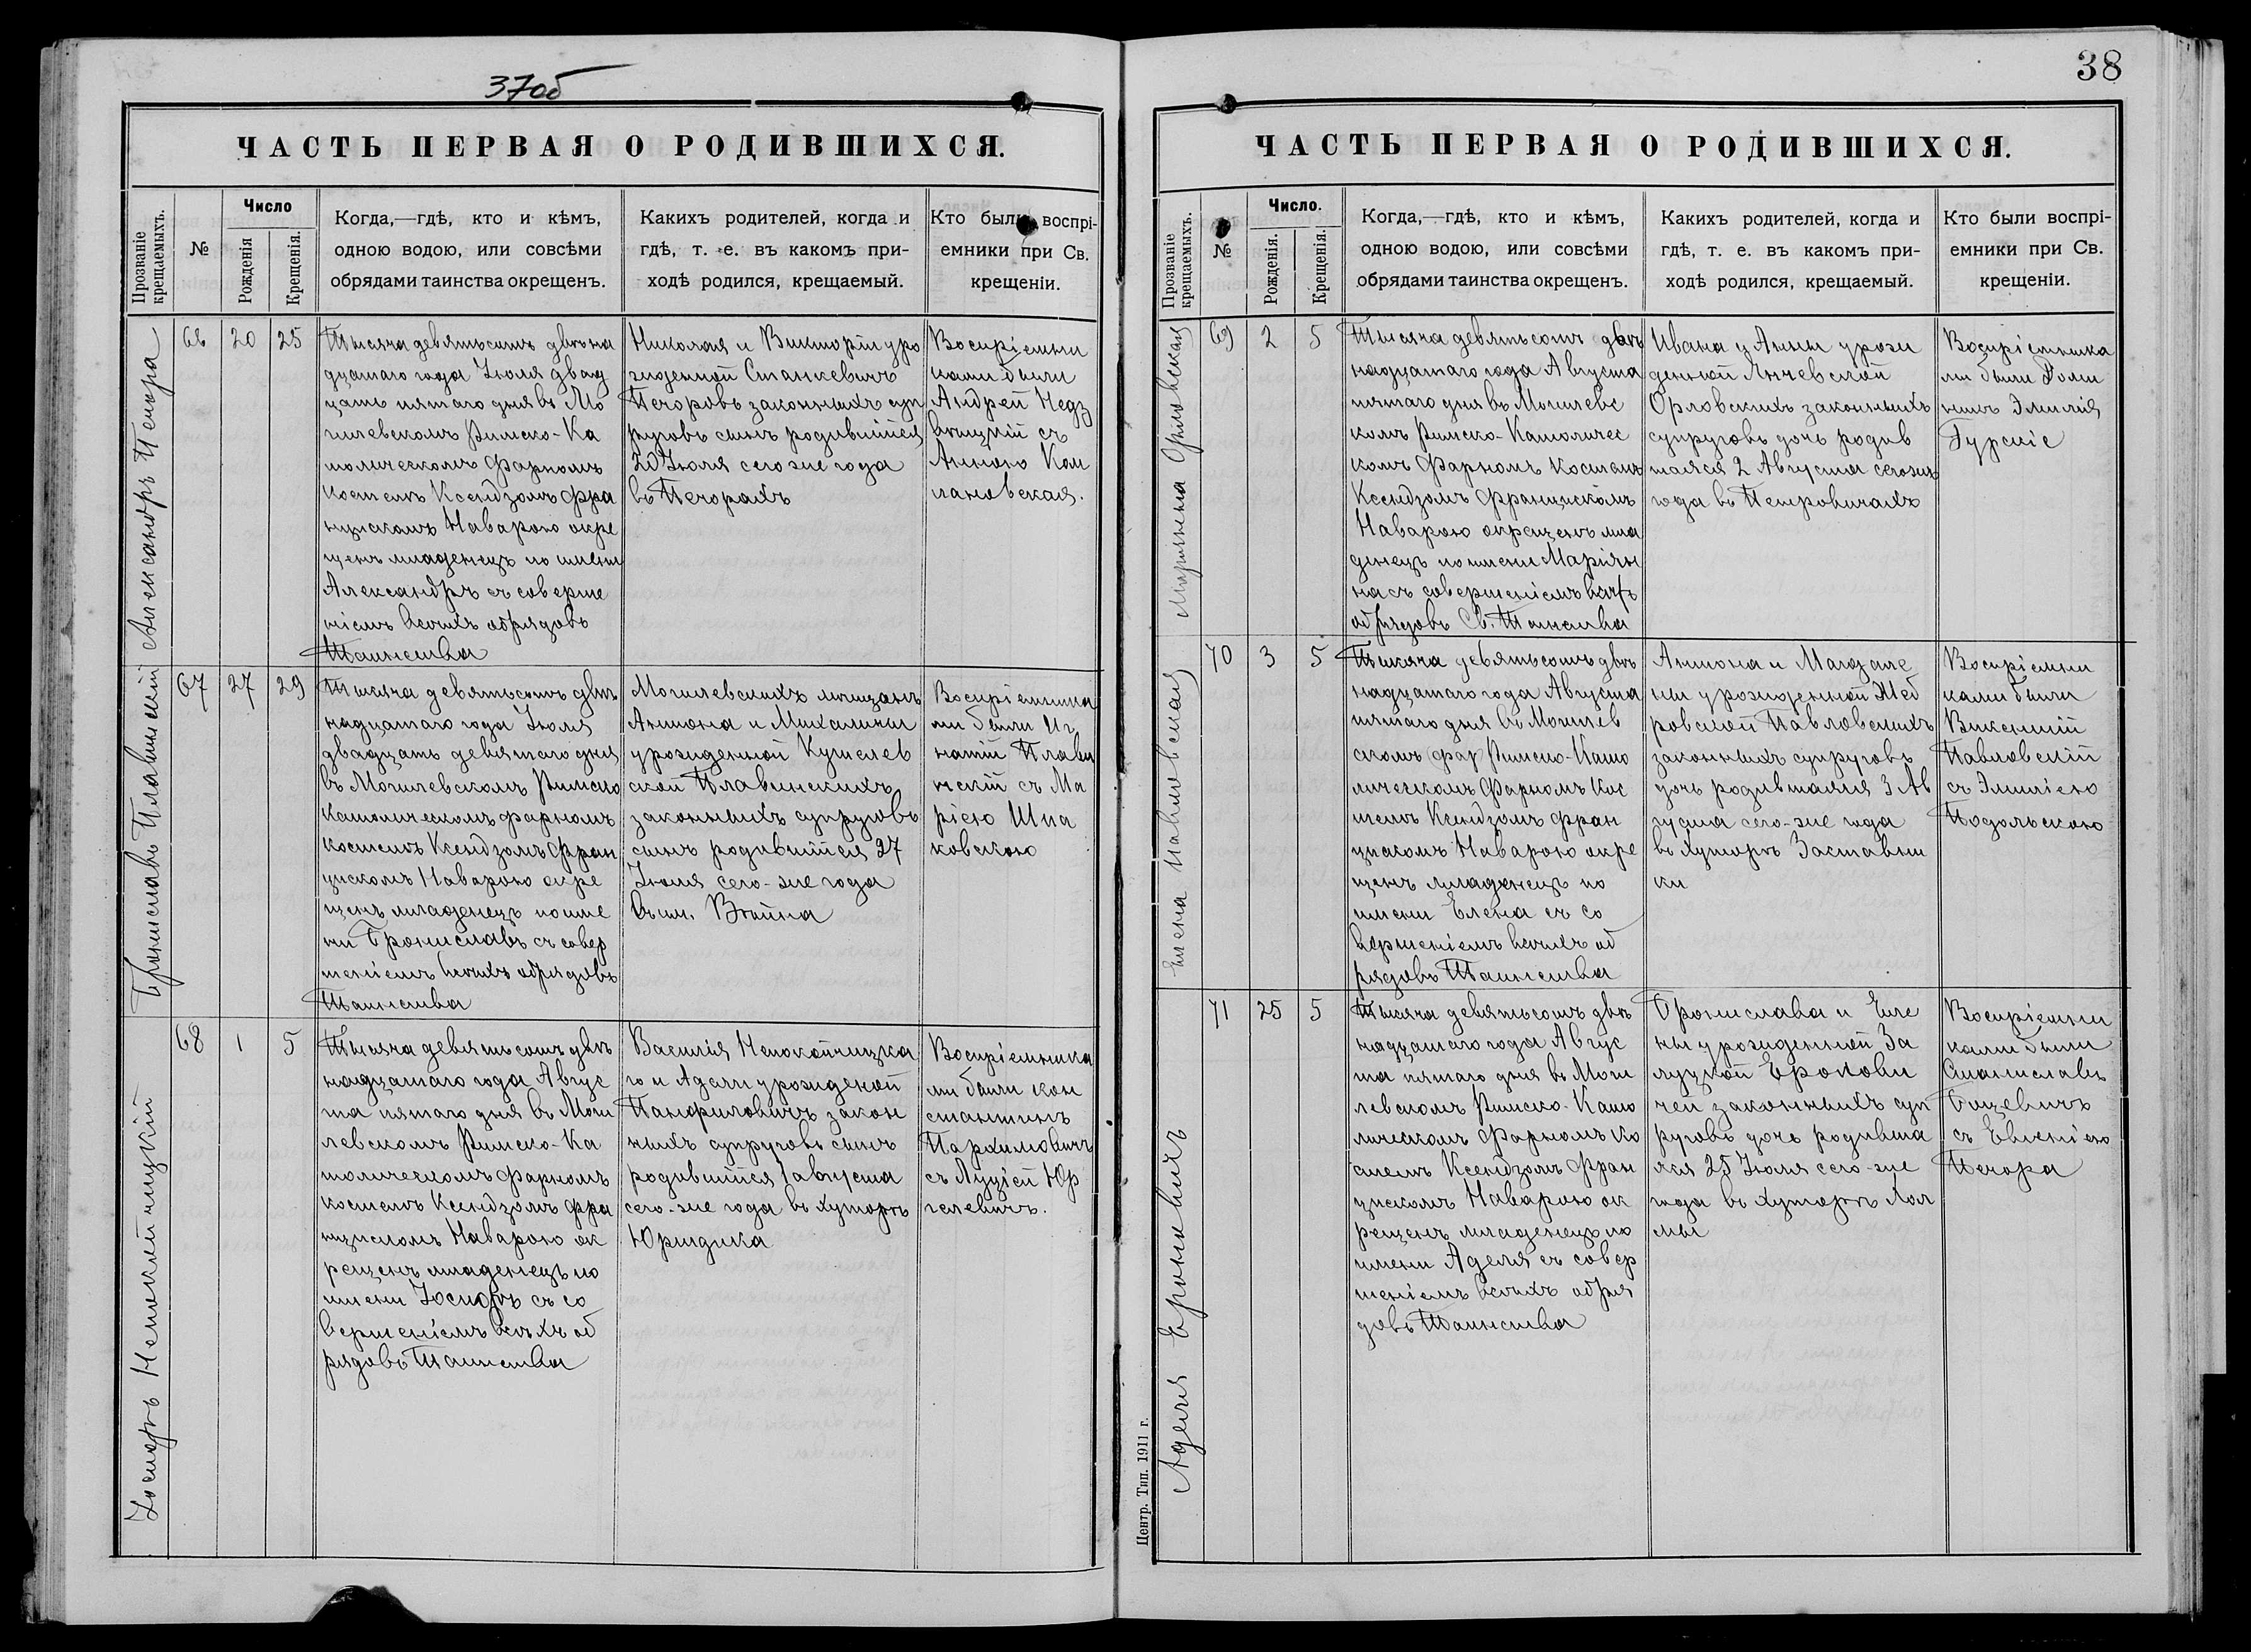 37об
ЧАСТЬ ПЕРВАЯ О РОДИВШИХСЯ.
Прозваніе крещаемыхъ.
№
Число
Рожденія
Крещенія.
Когда,—гдѣ, кто и кѣмъ,
одною водою, или совсѣми
обрядами таинства окрещенъ.
Какихъ родителей, когда и
гдѣ, т. е. въ какомъ при-
ходѣ родился, крещаемый.
Кто были воспрі-
емники при Св.
крещеніи.
Александръ Печора
66
20
25
Тысяча девятьсотъ двѣна
дцатаго года Іюля двад
цать пятаго дня въ Мо
гилевскомъ Римско-Ка
толическомъ фарномъ
костелѣ Ксендзомъ Фра
нцискомъ Наварою окре
щенъ младенецъ по имени
Александръ съ соверше
ніемъ всѣхъ обрядовъ
Таинства
Николая и Викторіи уро
жденной Станкевичъ
Печоровъ законныхъ суп
руговъ сынъ родившійся
20 Іюля сего же года
въ Печорахъ
Воспріемни
ками были
Андрей
съ
Анною
Брониславъ Плавинскій
67
27
29
Тысяча девятьсотъ двѣ
надцатаго года Іюля
двадцать девятаго дня
въ Могилевскомъ Римско
Католическомъ фарномъ
костелѣ Ксендзомъ Фран
цискомъ Наварою окре
щенъ младенецъ по име
ни Брониславъ съ совер
шеніемъ всѣхъ обрядовъ
Таинства
Могилевскихъ мѣщанъ
Антона и Михалины
урожденной Кушелев
ской Плавинскихъ
законныхъ супруговъ
сынъ родившійся 27
Іюля сего-же года
въ им. Вѣйна
Воспріемника
ми были Иг
натій Плави
нскій съ Ма
ріею Шпа
ковскою
Іосифъ Непокойчицкій
68
1
5
Тысяча девятьсотъ двѣ
надцатаго года Авгус
та пятаго дня въ Моги
левскомъ Римско-Ка
толическомъ фарномъ
костелѣ Ксендзомъ Фра
нцискомъ Наварою ок
рещенъ младенецъ по
имени Іосифъ съ со
вершеніемъ всѣхъ об
рядовъ Таинства
Василія Непокойчицка
го и Адели урожденой
Панфиловичъ закон
ныхъ супруговъ сынъ
родившійся 1 августа
сего-же года въ хуторѣ
Юридика
Воспріемника
ми были Кон
стантинъ
Пархимовичъ
съ Луціей Юр
гелевичъ.
38
ЧАСТЬ ПЕРВАЯ О РОДИВШИХСЯ.
Прозваніе крещаемыхъ.
№
Число.
Рожденія.
Крещенія.
Когда,—гдѣ, кто и кѣмъ,
одною водою, или совсѣми
обрядами таинства окрещенъ.
Какихъ родителей, когда и
гдѣ, т. е. въ какомъ при-
ходѣ родился, крещаемый.
Кто были воспрі-
емники при Св.
крещеніи.
Маріянна Орловская
69
2
5
Тысяча девятьсотъ двѣ
надцатаго года Августа
пятаго дня въ Могилевс
комъ Римско-Католичес
комъ Фарномъ костелѣ
Ксендзомъ Францискомъ
Наварою окрещенъ мла
денецъ по имени Маріян
на съ совершеніемъ всѣхъ
обрядовъ Св. Таинства
Ивана и Анны урож
денной Янчевской
Орловскихъ законныхъ
супруговъ дочь родив
шаяся 2 Августа сегоже
года въ Петровичахъ
Воспріемника
ми были
Эмилія
Гурскіе
Елена Павловская
70
3
5
Тысяча девятьсотъ двѣ
надцатаго года Августа
пятаго дня въ Могилев
скомъ фар Римско-Като
лическомъ Фарномъ Кос
телѣ Ксендзомъ Фран
цискомъ Наварою окре
щенъ младенецъ по
имени Елена съ со
вершеніемъ всѣхъ об
рядовъ Таинства
Антона и Магдале
ны урожденной Жеб
ровской Павловскихъ
законныхъ супруговъ
дочь родившаяся 3 Ав
густа сего-же года
въ хуторѣ Заставни
ки
Воспріемни
ками были
Викентій
Павловскій
съ Эмиліею
Подольскою
Аделя Ероловичъ
71
25
5
Тысяча девятьсотъ двѣ
надцатаго года Авгус
та пятаго дня въ Моги
левскомъ Римско-Като
лическомъ Фарномъ Ко
стелѣ Ксендзомъ Фран
цискомъ Наварою ок
рещенъ младенецъ по
имени Аделя съ совер
шеніемъ всѣхъ обря
довъ Таинства
Бронислава и Еле
ны урожденной За
луцкой
законныхъ суп
руговъ дочь родивша
яся 25 Іюля сего-же
года въ хуторѣ
Воспріемни
ками были
Станиславъ
Бицевичъ
съ Евгеніею
Печора
Центр. Тип. 1911 г.